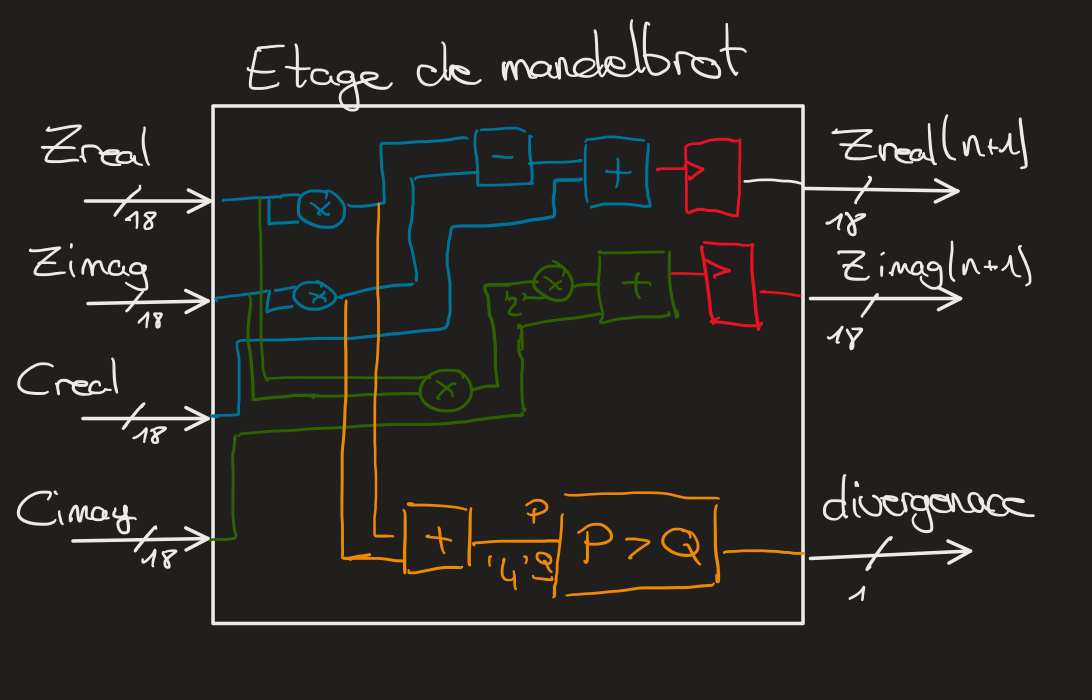 Etage de mandelbrot
Zreal
18
Zimag
18
Creal
18
Cimag
18
x
x
-
+
x
'2'
x
+
+
P
'4' Q
P > Q
Zreal(n+1)
18
Zimag(n+1)
18
divergenace
1